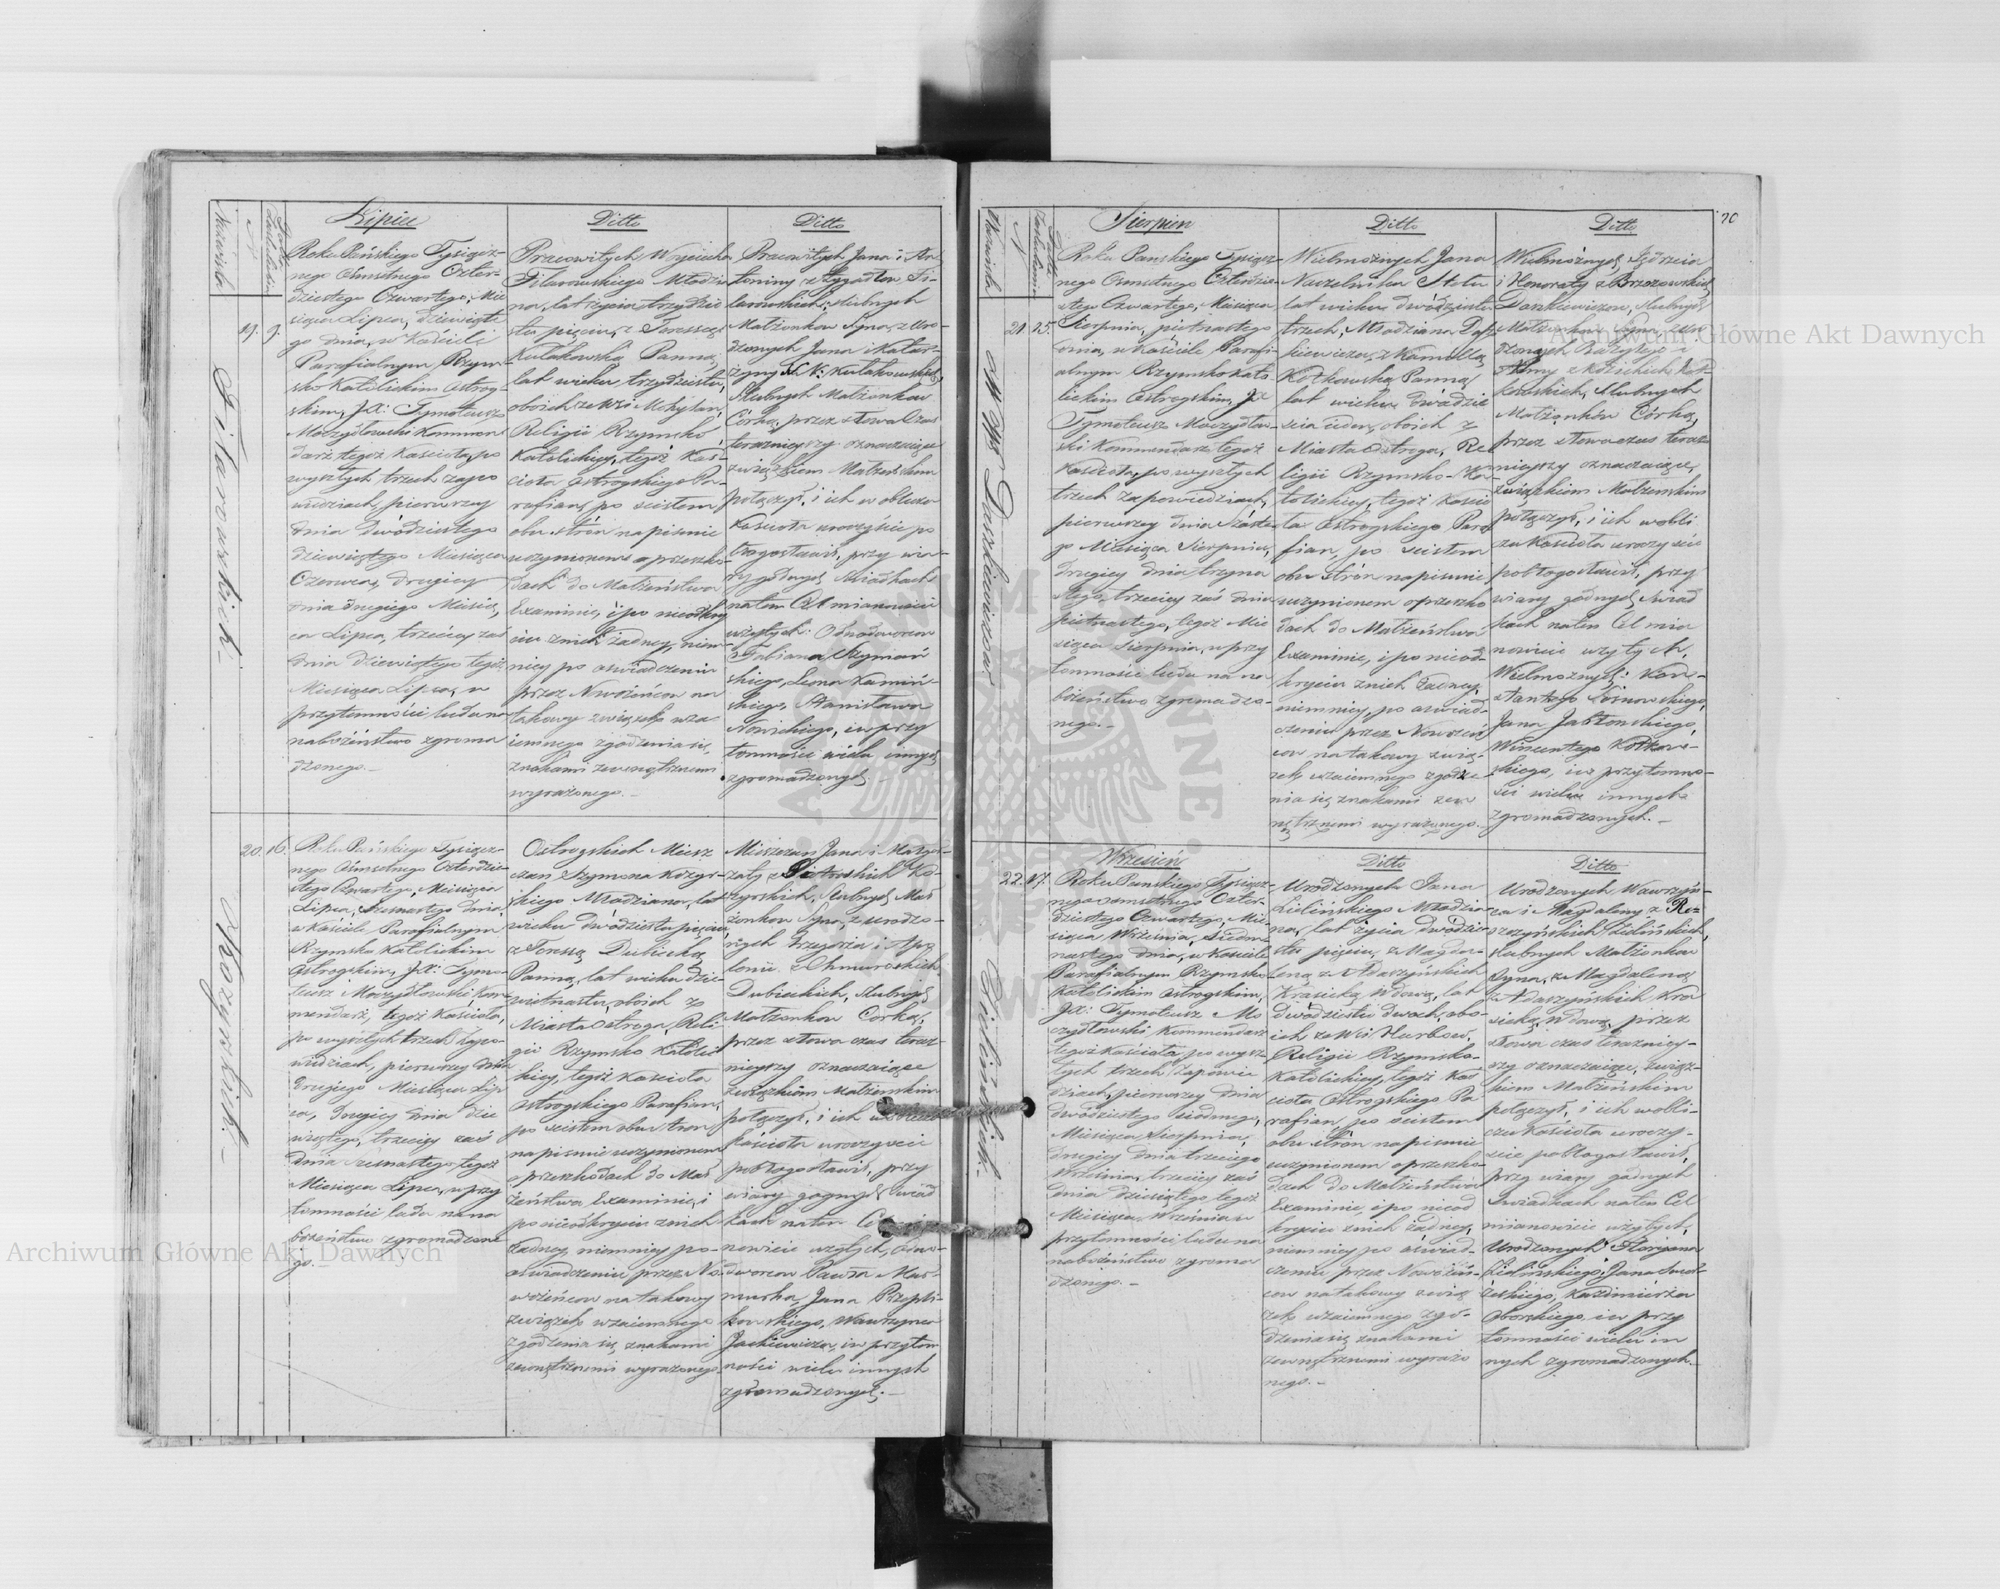 Nazwiska
N
Data zaślubin
Lipiec
19. 9.
Filarowskich.
Roku Pańskiego Tysiącz-
nego Ośmsetnego Czter-
dziestego Czwartego, Mie-
siąca Lipca, dziewiąte-
go dnia, w Kościele
Parafialnym Rzym-
sko Katolickim Ostrog-
skim, JX: Tymoteusz
Moczydłowski Kommen-
darz tegoż Kościoła, po
wyszłych trzech zapo-
wiedziach, pierwszey
dnia dwódziestego
dziewiątego Miesiąca
Czerwca, drugiey
dnia drugiego Miesią-
ca Lipca, trzeciey zaś
dnia dziewiątego tegoż
Miesiąca Lipca, w
przytomności ludu na
nabożeństwo zgroma
dzonego.—
Ditto
Pracowitych Woyciecha
Filarowskiego Młodzia
na, lat życia trzydzie
stu pięciu, z Teressą
Kułakowską Panną,
lat wieku trzydziestu,
oboich ze Wsi Mohylan,
Religii Rzymsko
Katolickiey, tegoż Koś-
cioła Ostrogskiego Pa-
rafian, po scistem
obu stron na piśmie
uczynionem o przeszko-
dach do Małżeństwa
Examinie, i po nieodkry
ciu z nich żadney, niem-
niey po oświadczeniu
przez Nowożeńcow na
takowy związek wza
iemnego zgodzenia się,
znakami zewnętrznemi
wyrażonego.—
Ditto
Pracowitych Jana i An-
toniny z Zygadłow Fi-
larowskich, ślubnych
Małżonkow Syna, z Uro-
dzonych Jana i Katar-
zyny N. N: Kułakowskich,
Ślubnych Małżonkow
Córką, przez słowa czas
teraznieyszy oznaczaiące
związkiem Małżeńskim
połączył, i ich w obliczu
Kościoła uroczyście po
błogosławił, przy wia-
ry godnych Świadkach
na ten Cel mianowicie
wziętych: Odnodworcow
Fabiana Szymań
skiego, Leona Kamiń-
skiego, Stanisława
Nowickiego, i w przy
tomności wielu innych
zgromadzonych.
20. 16.
Kozyrskich.—
Roku Pańskiego Tysiącz-
nego Ośmsetnego Czterdzie
stego Czwartego, Miesiąca
Lipca, Szesnastego dnia,
w Kościele Parafialnym
Rzymsko Katolickim
Ostrogskim, JX: Tymo
teusz Moczydłowski, Kom-
mendarz, tegoż Kościoła,
po wyszłych trzech Zapo-
wiedziach, pierwszey dnia
drugiego Miesiąca Lip
ca, drugiey dnia dzie
wiątego, trzeciey zaś
dnia Szesnastego tegoż
Miesiąca Lipca, w przy
tomności ludu na na
bożeństwo zgromadzone
go.—
Ostrogskich Miesz
czan Szymona Kozyr-
skiego Młodziana, lat
wieku dwódziestu pięciu,
z Teressą Dubicką
Panną, lat wieku dzie
więtnastu, oboich z
Miasta Ostroga, Reli
gii Rzymsko Katolic
kiey, tegoż Kościoła
Ostrogskiego Parafian,
po scistem obu stron
na piśmie uczynionem
o przeszkodach do Mał
żeństwa Examinie, i
po nieodkryciu z nich
żadney, niemniey po-
oświadczeniu przez No
wożeńcow na takowy
związek wzaiemnego
zgodzenia się, znakami
zewnętrznemi wyrażonego.
Mieszczan Jana i Małgor-
zaty z Piotrowskich Ko-
zyrskich, ślubnych Mał
żonkow Syna, z urodzo-
nych Grzegorza i Apo
lonii z Chmurowskich
Dubickich, Ślubnych
Małżonkow Córką,
przez słowa czas teraz-
nieyszy oznaczaiące
związkiem Małżeńskim
połączył, i ich w obliczu
Kościoła uroczyście
pobłogosławił, przy
wiary godnych świad
kach na ten Cel mia-
nowicie wziętych, Odno-
dworcow Pawła Mar-
murka, Jana Przepli-
kowskiego, Wawrzyńca
Jackiewicza, i w przytom
ności wielu innych
zgromadzonych.—
70
Nazwiska
N
Data zaślubin
Sierpień
21. 15.
W. W. Daszkiewiczow.
Roku Pańskiego Tysiącz-
nego Ośmsetnego Czterdzie-
stego Czwartego, Miesiąca
Sierpnia, piętnastego
dnia, w Kościele Parafi-
alnym Rzymskokato
lickim Ostrogskim, JX
Tymoteusz Moczydłow-
ski Kommendarz tegoż
Kościoła, po wyszłych
trzech zapowiedziach,
pierwszey dnia Szóste
go Miesiąca Sierpnia,
drugiey dnia trzyna
stego, trzeciey zaś dnia
piętnastego, tegoż Mie
siąca Sierpnia, w przy
tomności ludu na na
bożeństwo zgromadzo-
nego.—
Ditto
Wielmożnych Jana
Naczelnika Stołu
lat wieku dwódziestu
trzech, Młodziana Dasz
kiewicza, z Kamillą
Kotkowską Panną,
lat wieku dwódzie
scia ieden, oboich z
Miasta Ostroga, Re
ligii Rzymsko-Ka-
tolickiey, tegoż Koście
ła Ostrogskiego Para
fian, po scistem
obu stron na piśmie
uczynionem o przeszko
dach do Małżeństwa
Examinie, i po nieod-
kryciu z nich żadney,
niemniey, po oświad-
czeniu przez Nowożeń
cow na takowy zwią-
zek wzaiemnego zgodze
nia się, znakami zew
nętrznemi wyrażonego.
Ditto
Wielmożnych Jędrzeia
i Honoraty z Brzozowskich
Daszkiewiczow, Ślubnych
Małżonkow Syna, z uro
dzonych Bazylego i
Anny z Kozickich Kot-
kowskich, Ślubnych
Małżonków Córką,
przez słowa czas teraz-
nieyszy oznaczaiące,
związkiem Małżeńskim
połączył, i ich w obli
czu Kościoła uroczyście
pobłogosławił, przy
wiary godnych Świad
kach na ten Cel mia
nowicie wziętych,
Wielmożnych: Kon-
stantego Sosnowskiego,
Jana Jabłonskiego,
Wincentego Kotkow-
skiego, i w przytomno-
ści wielu innych
zgromadzonych.—
22. 17.
Zielińskich.—
Wrzesień
Roku Pańskiego Tysiącz-
nego Ośmsetnego Czter-
dziestego Czwartego, Mie-
siąca Września, Siedm-
nastego dnia, w Kościele
Parafialnym Rzymsko
Katolickim Ostrogskim,
JX: Tymoteusz Mo-
czydłowski Kommendarz
tegoż Kościoła, po wysz-
łych trzech Zapowie
dziach, pierwszey dnia
dwódziestego siodmego,
Miesiąca Sierpnia,
drugiey dnia trzeciego
Września, trzeciey zaś
dnia dziesiątego tegoż
Miesiąca, Września w
przytomności ludu na
nabożeństwo zgroma
dzonego.—
Ditto
Urodzonych Jana
Zielińskiego Młodzia-
na, lat życia dwódzie-
stu pięciu, z Magda-
leną z Adaszyńskich
Krasicką Wdową, lat
dwódziestu dwoch, obo-
ich ze Wsi Hurbow,
Religii Rzymsko-
Katolickiey, tegoż Koś
cioła Ostrogskiego Pa
rafian, po scistem
obu stron na piśmie
uczynionem o przeszko-
dach do Małżeństwa
Examinie, i po nieod
kryciu z nich żadney,
niemniey po oświad-
czeniu przez Nowożeń-
cow na takowy zwią
zek wzaiemnego zgo-
dzenia się, znakami
zewnętrznemi wyrażo
nego.—
Ditto
Urodzonych Wawrzyń-
ca i Magdaleny z
Zielińskich,
ślubnych Małżonkow
Syna, z Magdaleną
z Adaszyńskich Kra
sicką, Wdową, przez
słowa czas terazniey-
szy oznaczaiące, związ-
kiem Małżeńskim
połączył, i ich w obli-
czu Kościoła uroczy-
ście pobłogosławił,
przy wiary godnych
Świadkach na ten Cel
mianowicie wziętych,
Urodzonych: Floryana
Zielińskiego, Jana
Kazimierza
Oborskiego, i w przy
tomności wielu in
nych zgromadzonych.
Archiwum Główne Akt Dawnych
Archiwum Główne Akt Dawnych